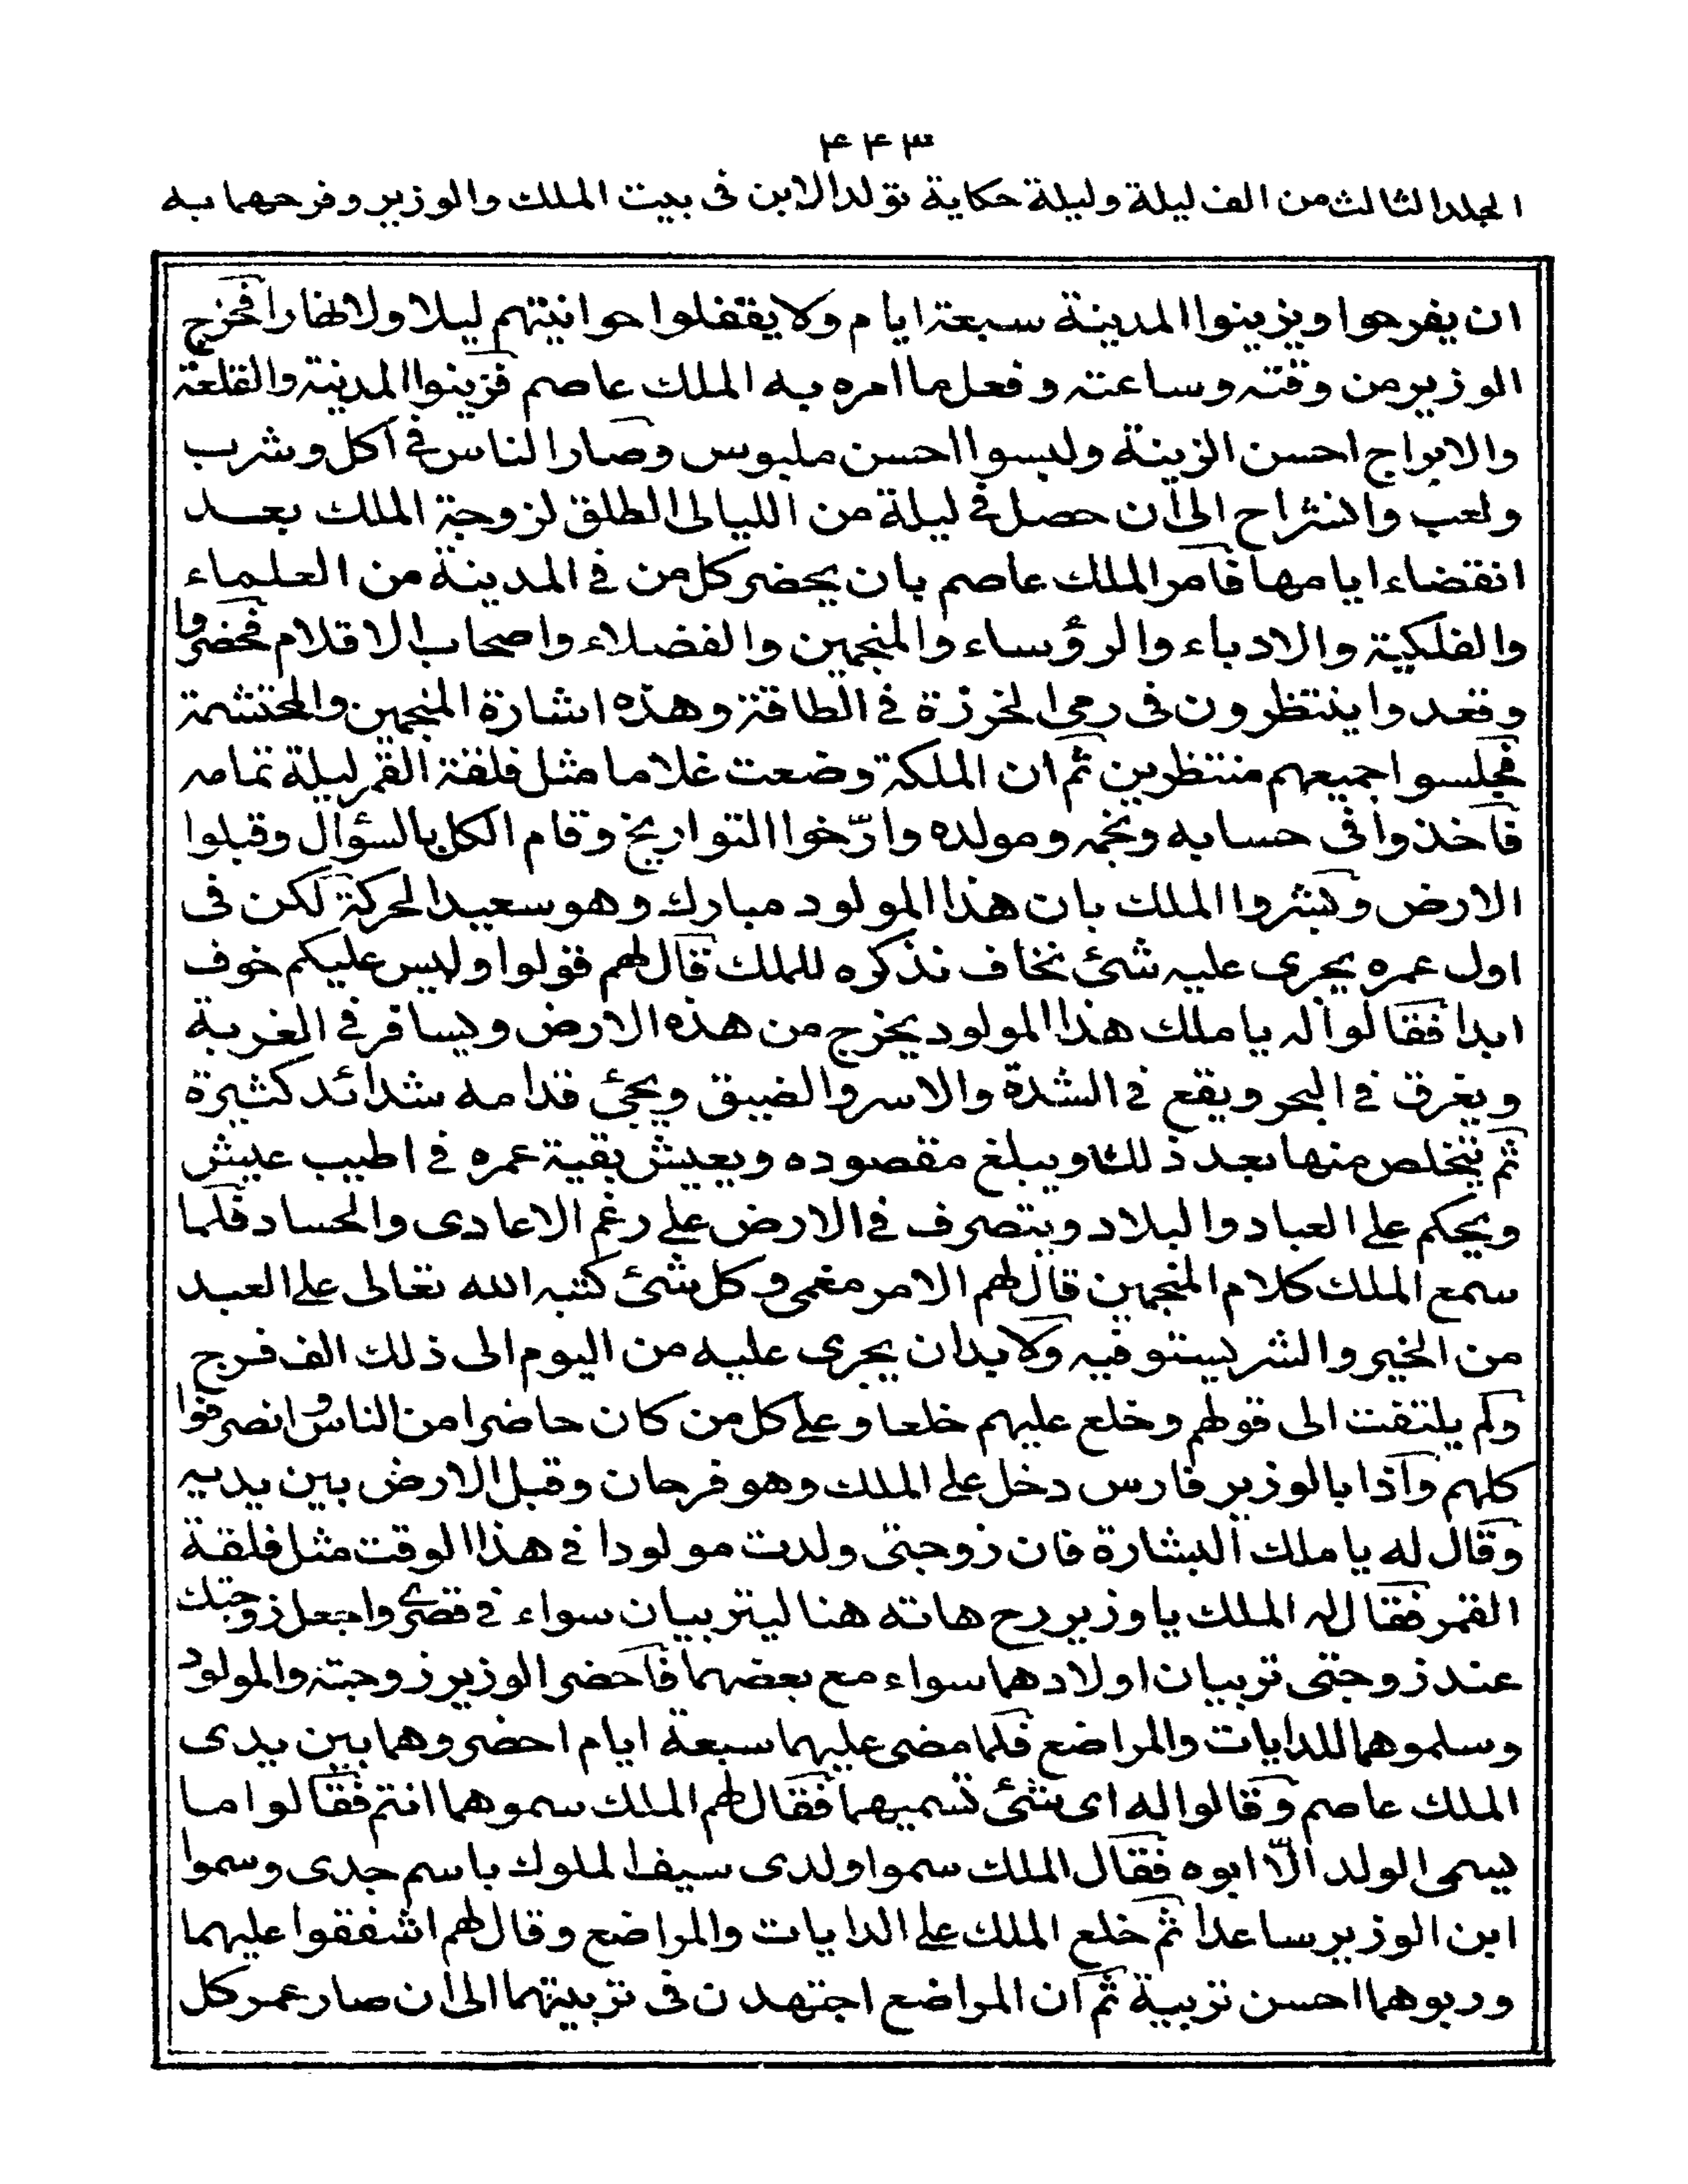 ۴۴۳
المجلد الثالث من الف ليلة وليلة حكاية تولد الابن فى بيت الملك والوزير وفرحهما به
ان يفرحوا ويزينوا المدينة سبعة ايام ولا يقفلوا حوانيتهم ليلا ولا نهارا فخرج
الوزير من وقته وساعته وفعل ما امره به الملك عاصم فزينوا المدينة والقلعة
والابراج احسن الزينة ولبسوا احسن ملبوس وصار الناس فى اكل وشرب
ولعب وانشراح الى ان حصل فى ليلة من الليالى الطلق لزوجة الملك بعد
انقضاء ايامها فامر الملك عاصم بان يحضر كل من فى المدينة من العلماء
والفلكية والادباء والرؤساء والمنجمين والفضلاء واصحاب الاقلام فحضروا
وقعدوا ينتظرون فى رمى الخرزة فى الطاقة وهذه اشارة المنجمين والمحتشمة
فجلسوا جميعهم منتظرين ثم ان الملكة وضعت غلاما مثل فلقة القمر ليلة تمامه
فاخذوا فى حسابه ونجمه ومولده وارّخوا التواريخ وقام الكل بالسؤال وقبلوا
الارض وبشروا الملك بان هذا المولود مبارك وهو سعيد الحركة لكن فى
اول عمره يجرى عليه شئ نخاف نذكره للملك قال لهم قولوا وليس عليكم خوف
ابدا فقالوا له يا ملك هذا المولود يخرج من هذه الارض ويسافر فى الغربة
ويغرق فى البحر ويقع فى الشدة والاسر والضيق ويجئ قدامه شدائد كثيرة
ثم يتخلص منها بعد ذلك ويبلغ مقصوده ويعيش بقية عمره فى اطيب عيش
ويحكم على العباد والبلاد ويتصرف فى الارض على رغم الاعادى والحساد فلما
سمع الملك كلام المنجمين قال لهم الامر مغمى وكل شئ كتبه الله تعالى على العبد
من الخير والشر يستوفيه ولا بد ان يجرى عليه من اليوم الى ذلك الف فرج
ولم يلتفت الى قولهم وخلع عليهم خلعا وعلى كل من كان حاضرا من الناس وانصرفوا
كلهم واذا بالوزير فارس دخل على الملك وهو فرحان وقبل الارض بين يديه
وقال له يا ملك البشارة فان زوجتى ولدت مولودا فى هذا الوقت مثل فلقة
القمر فقال له الملك يا وزير رح هاته هنا ليتربيان سواء فى قصرى واجعل زوجتك
عند زوجتى تربيان اولادهما سواء مع بعضهما فاحضر الوزير زوجته والمولود
وسلموهما للدايات والمراضع فلما مضى عليهما سبعة ايام احضروهما بين يدى
الملك عاصم وقالوا له اى شئ تسميهما فقال لهم الملك سموهما انتم فقالوا ما
يسمى الولد الّا ابوه فقال الملك سموا ولدى سيف الملوك باسم جدى وسموا
ابن الوزير ساعدا ثم خلع الملك على الدايات والمراضع وقال لهم اشفقوا عليهما
وربوهما احسن تربية ثم ان المراضع اجتهدن فى تربيتهما الى ان صار عمر كل